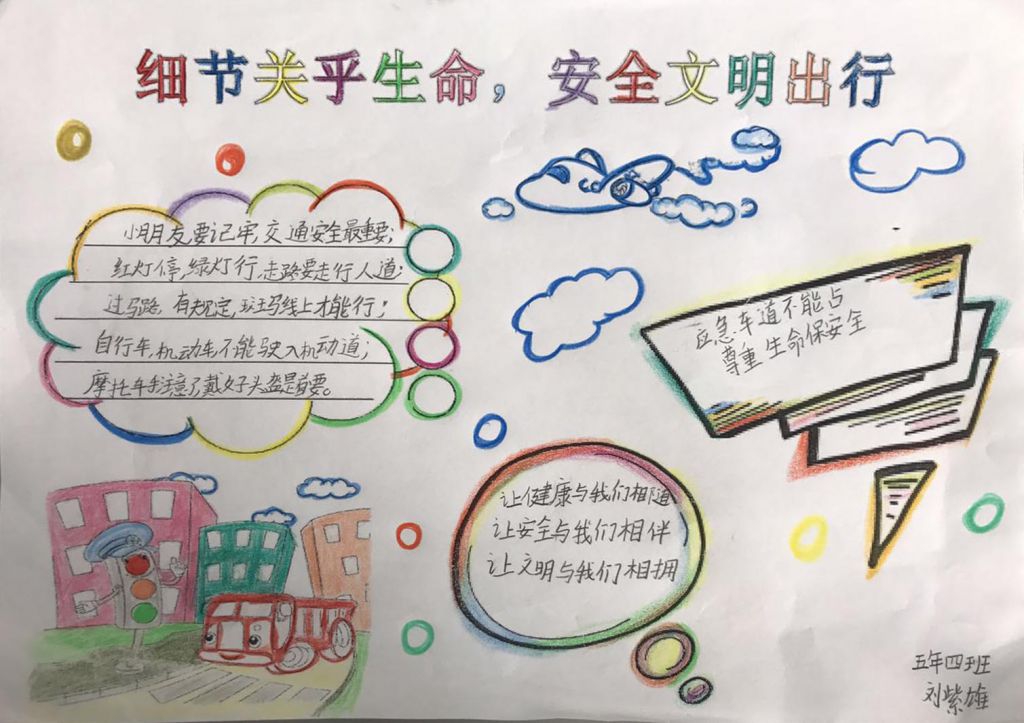 细节关乎生命，安全文明出行
小朋友要记牢，交通安全最重要；
红灯停，绿灯行，走路要走行人道；
过马路，有规定，斑马线上才能行；
自行车，机动车，不能驶入机动道；
摩托车注意了，戴好头盔是首要。
应急车道不能占
尊重生命保安全
让健康与我们相随
让安全与我们相伴
让文明与我们相拥
五年四班
刘紫雄